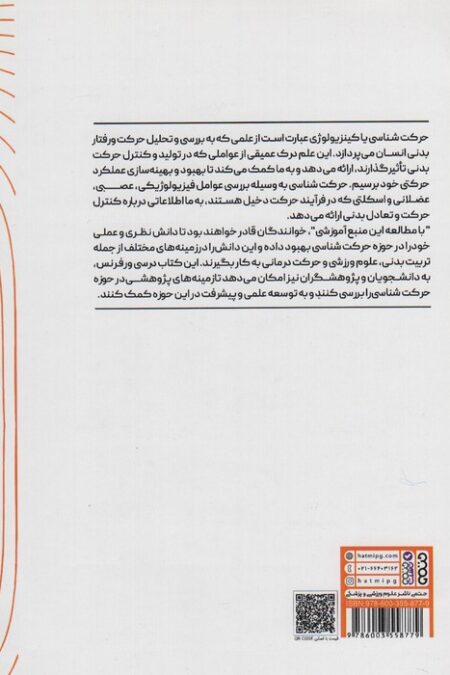 حرکت شناسی یا کینزیولوژی عبارت است از علمی که به بررسی و تحلیل حرکت و رفتار
بدنی انسان می‌پردازد. این علم درک عمیقی از عواملی که در تولید و کنترل حرکت
بدنی تأثیرگذارند، ارائه می‌دهد و به ما کمک می‌کند تا بهبود و بهینه‌سازی عملکرد
حرکتی خود برسیم. حرکت شناسی به وسیله بررسی عوامل فیزیولوژیکی، عصبی،
عضلانی و اسکلتی که در فرآیند حرکت دخیل هستند، به ما اطلاعاتی درباره کنترل
حرکت و تعادل بدنی ارائه می‌دهد.
"با مطالعه این منبع آموزشی"، خوانندگان قادر خواهند بود تا دانش نظری و عملی
خود را در حوزه حرکت شناسی بهبود داده و این دانش را در زمینه‌های مختلف از جمله
تربیت بدنی، علوم ورزشی و حرکت درمانی به کار بگیرند. این کتاب درسی و رفرنس،
به دانشجویان و پژوهشگران نیز امکان می‌دهد تا زمینه‌های پژوهشی در حوزه
حرکت شناسی را بررسی کنند و به توسعه علمی و پیشرفت در این حوزه کمک کنند.
hatmipg.com
۰۲۱-۶۶۴۰۳۱۶۲
hatmipg
حتمی ناشر علوم ورزشی و پزشکی
ISBN: 978-600-355-877-9
9 786003 558779
QR CODE قیمت با اسکن